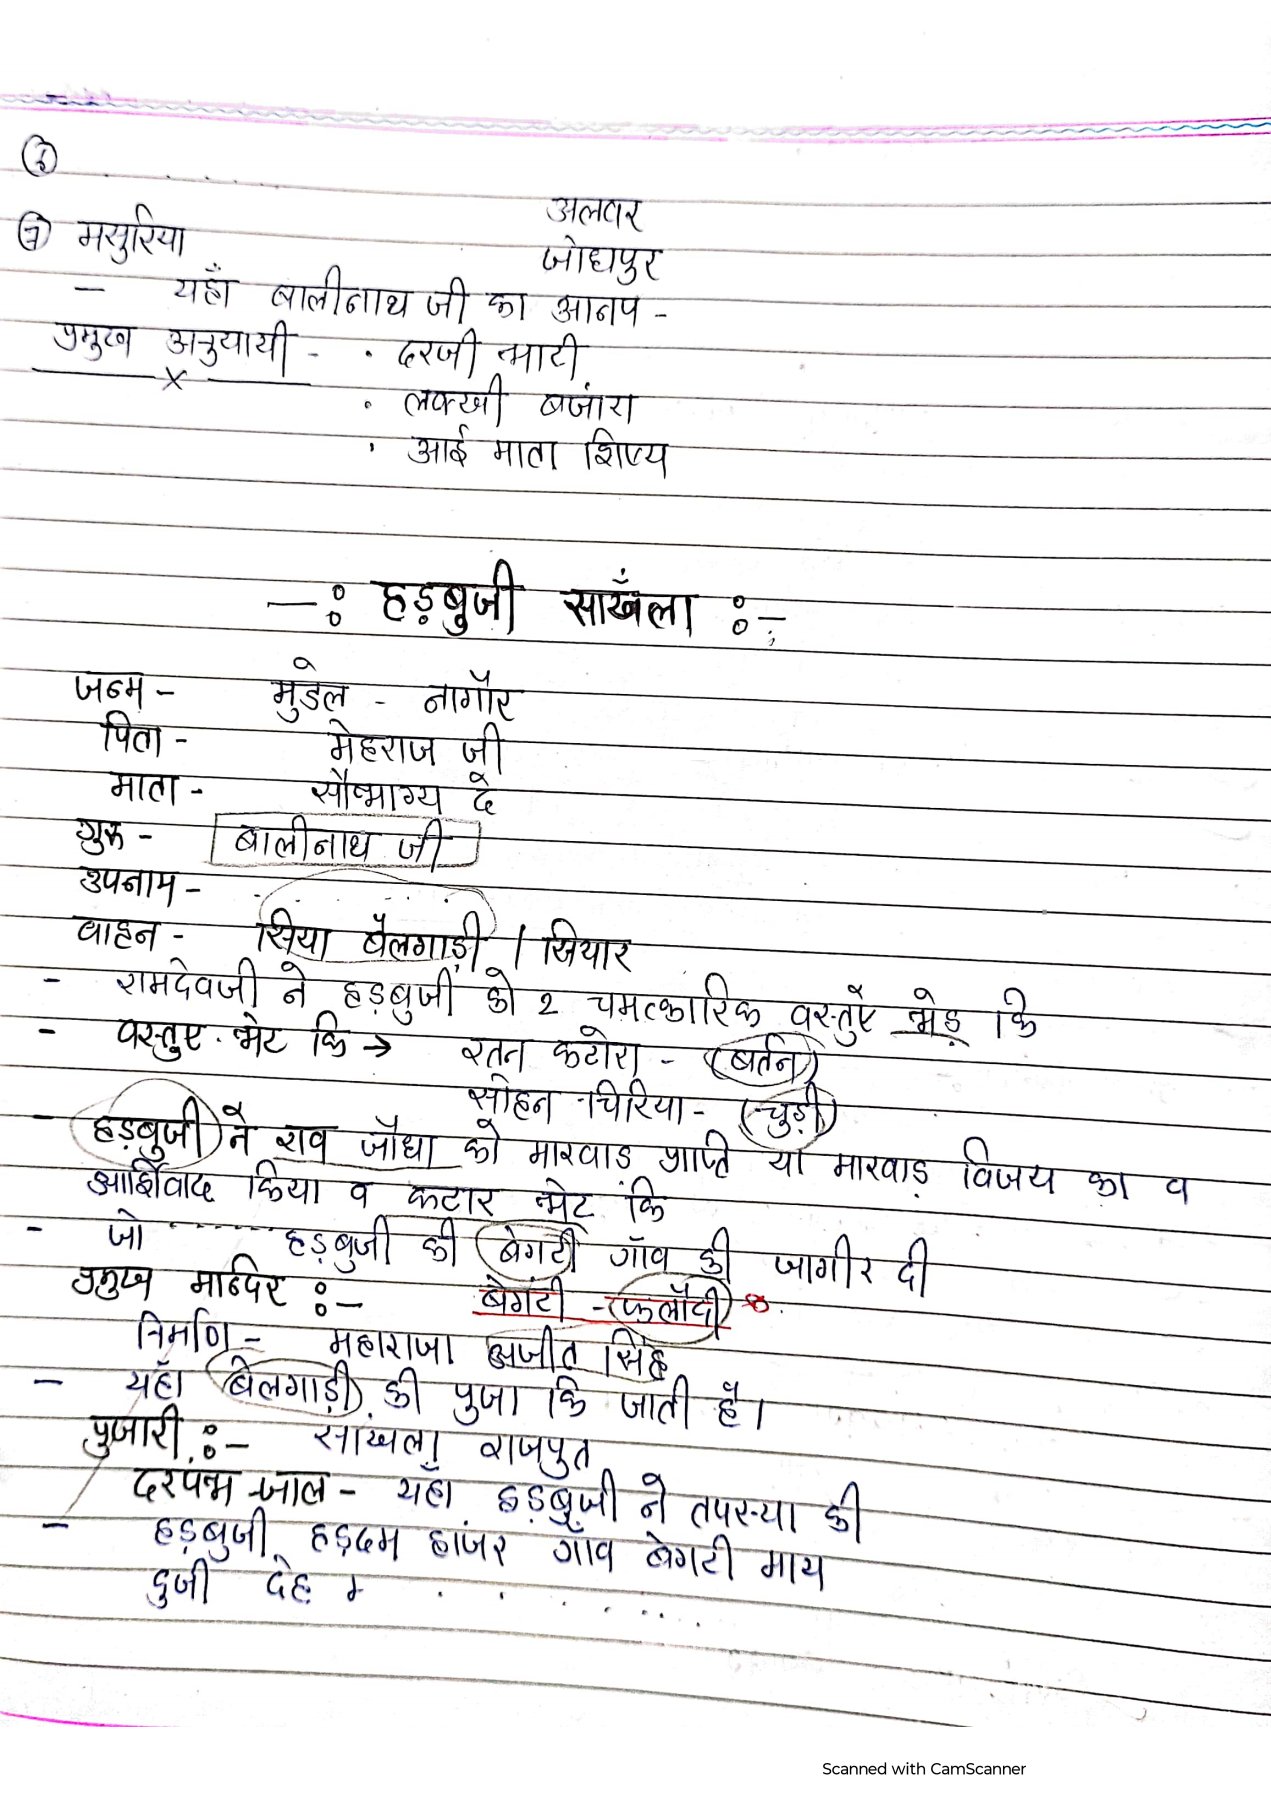 6
अलवर
7 मसुरिया
जोधपुर
– यहाँ बालीनाथ जी का आनप -
प्रमुख अनुयायी - . दरजी भाटी
. लक्खी बजांरा
. आई माता शिष्य
–: हड़बुजी साखँला :-
जन्म - मुडेल - नागौर
पिता - मेहराज जी
माता - सौभाग्य दे
गुरू - बालीनाथ जी
उपनाम -
वाहन - सिया बैलगाड़ी / सियार
- रामदेवजी ने हड़बुजी को 2 चमत्कारिक वस्तुऐ भेड़ कि
- वस्तुए भेट कि → रतन कटोरा - (बर्तन)
सोहन चिरिया - (चुड़ी)
- हड़बुजी ने राव जौधा को मारवाड़ प्राप्ति या मारवाड़ विजय का व
आर्शिवाद किया व कटार भेट कि
- जो ........ हड़बुजी की बेगटी गाँव की जागीर दी
प्रमुख मन्दिर :- बेगंटी - फलौदी
निर्माण - महाराजा अजीत सिंह
- यहाँ बेलगाड़ी की पुजा कि जाती है।
पुजारी :- साखला राजपुत
दरपभ जाल - यहाँ हड़बुजी ने तपस्या की
- हड़बुजी हड़दम हाजंर गाँव बेगटी माय
दुजी देह
Scanned with CamScanner